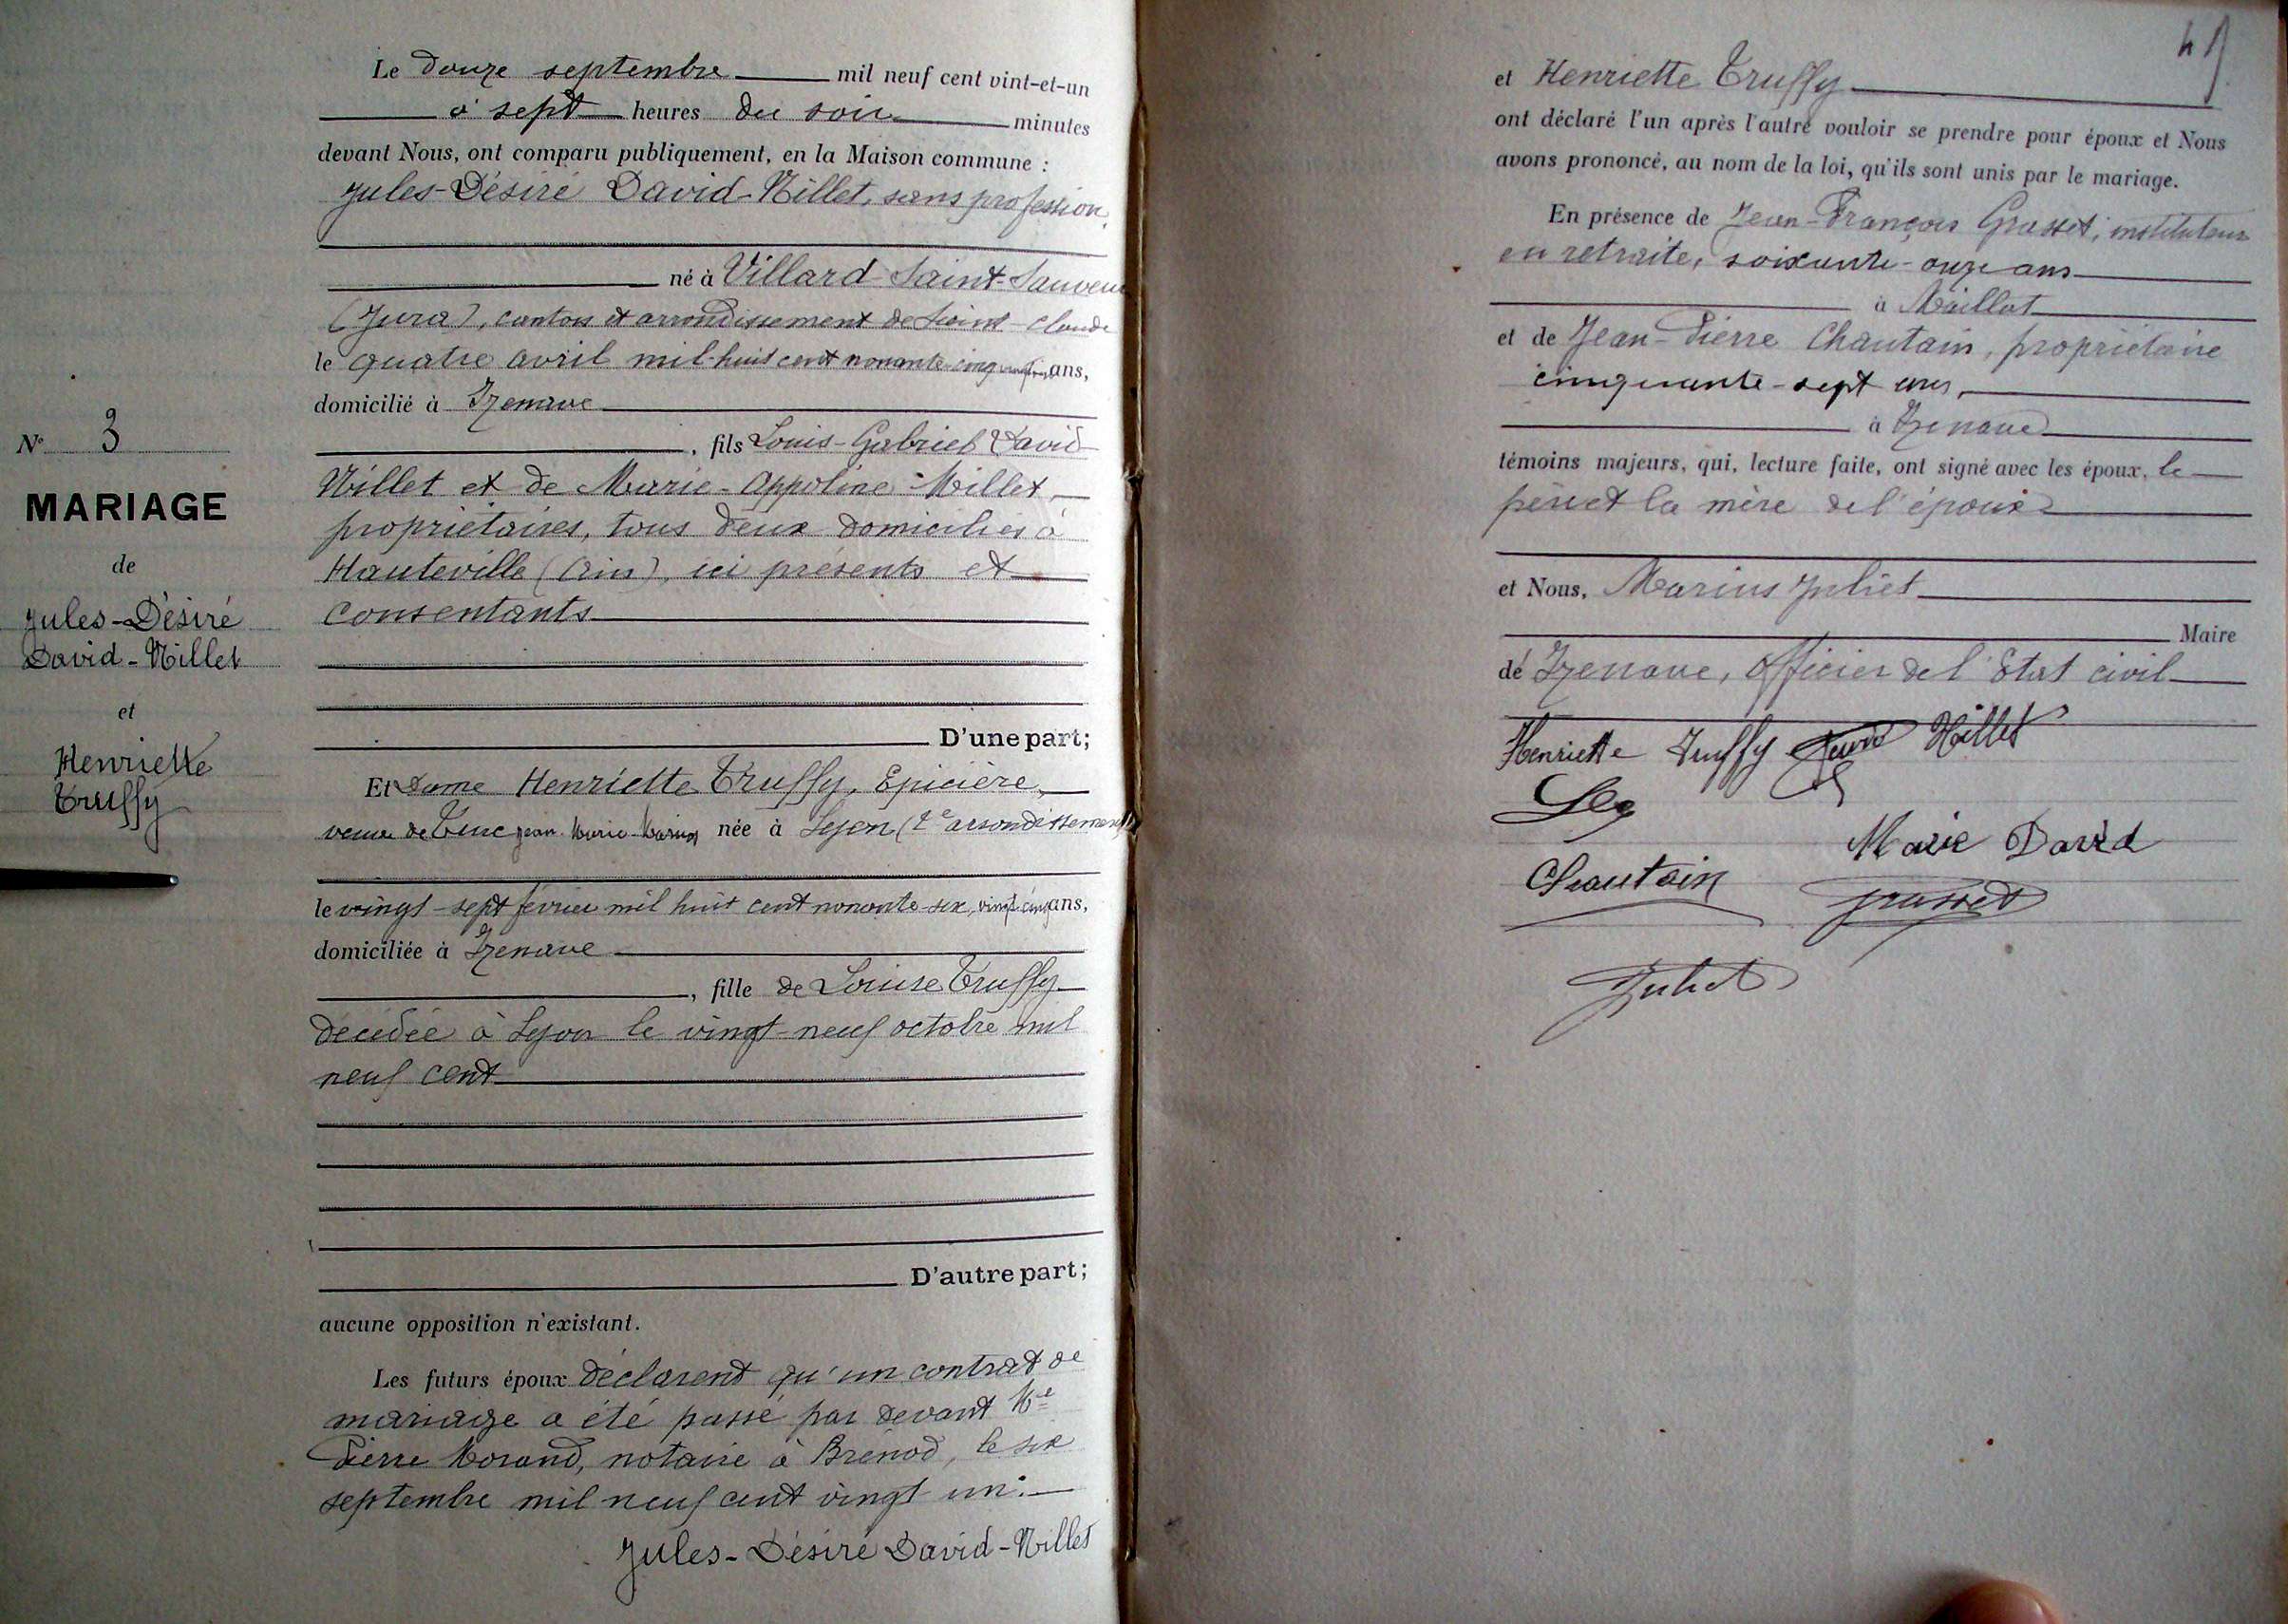 Le douze septembre mil neuf cent vint-et-un
à sept heures du soir minutes
devant Nous, ont comparu publiquement, en la Maison commune :
Jules-Désiré David-Nillet, sans profession,
né à Villard-Saint-Sauveur
(Jura), canton et arrondissement de Saint-Claude
le quatre avril mil-huit cent nonante-cinq ans,
domicilié à Izenave
, fils Louis-Gabriel David
Nillet et de Marie-Appoline Millet,
propriétaires, tous deux domiciliés à
Hauteville (Ain), ici présents et
consentants
D'une part;
Et Dame Henriette Truffy, Epicière,
veuve de Jean-Marie-Marius née à Lyon (2e arrondissement)
le vingt-sept février mil huit cent nonante-six, vingt-cinq ans,
domiciliée à Izenave
, fille de Louise Truffy
décédée à Lyon le vingt-neuf octobre mil
neuf cent
D'autre part;
aucune opposition n'existant.
Les futurs époux déclarent qu'un contrat de
mariage a été passé par devant Me
Pierre Morand, notaire à Brénod, le six
septembre mil neuf cent vingt un.
Jules-Désiré David-Nillet
N° 3
MARIAGE
de
Jules-Désiré
David-Nillet
et
Henriette
Truffy
et Henriette Truffy
ont déclaré l'un après l'autre vouloir se prendre pour époux et Nous
avons prononcé, au nom de la loi, qu'ils sont unis par le mariage.
En présence de Jean-François Grasset, instituteur
en retraite, soixante-onze ans
à Maillat
et de Jean-Pierre Chautain, propriétaire
cinquante-sept ans,
à Izenave
témoins majeurs, qui, lecture faite, ont signé avec les époux, le
père et la mère de l'époux
et Nous, Marius Juliet
Maire
de Izenave, Officier de l'Etat civil
Henriette Truffy David Nillet
Marie David
Chautain Grasset
Juliet